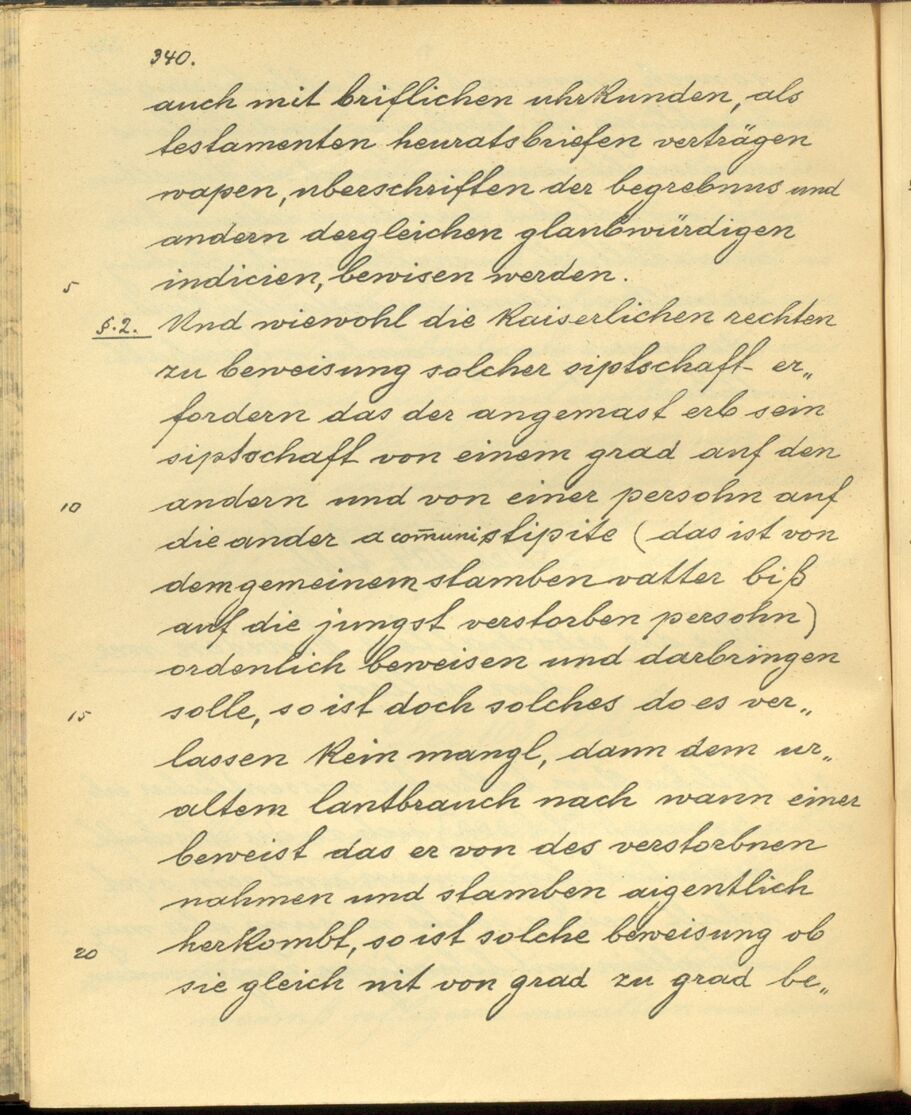 340.
auch mit briflichen uhrkunden, als
testamenten heuratsbriefen verträgen
wapen, uberschriften der begrebnus und
andern dergleichen glaubwürdigen
5 indicien, bewisen werden.
§.2. Und wiewohl die Kaiserlichen rechten
zu beweisung solcher siptschaft er„
fordern das der angemast erb sein
siptschaft von einem grad auf den
10 andern und von einer persohn auf
die ander a com̄uni stipite (das ist von
dem gemeinem stamben vatter biß
auf die jungst verstorben persohn)
ordenlich beweisen und darbringen
15 solle, so ist doch solches do es ver„
lassen Kein mangl, dann dem ur„
altem lantbrauch nach wann einer
beweist das er von des verstorbnen
nahmen und stamben aigentlich
20 herkombt, so ist solche beweisung ob
sie gleich nit von grad zu grad be„